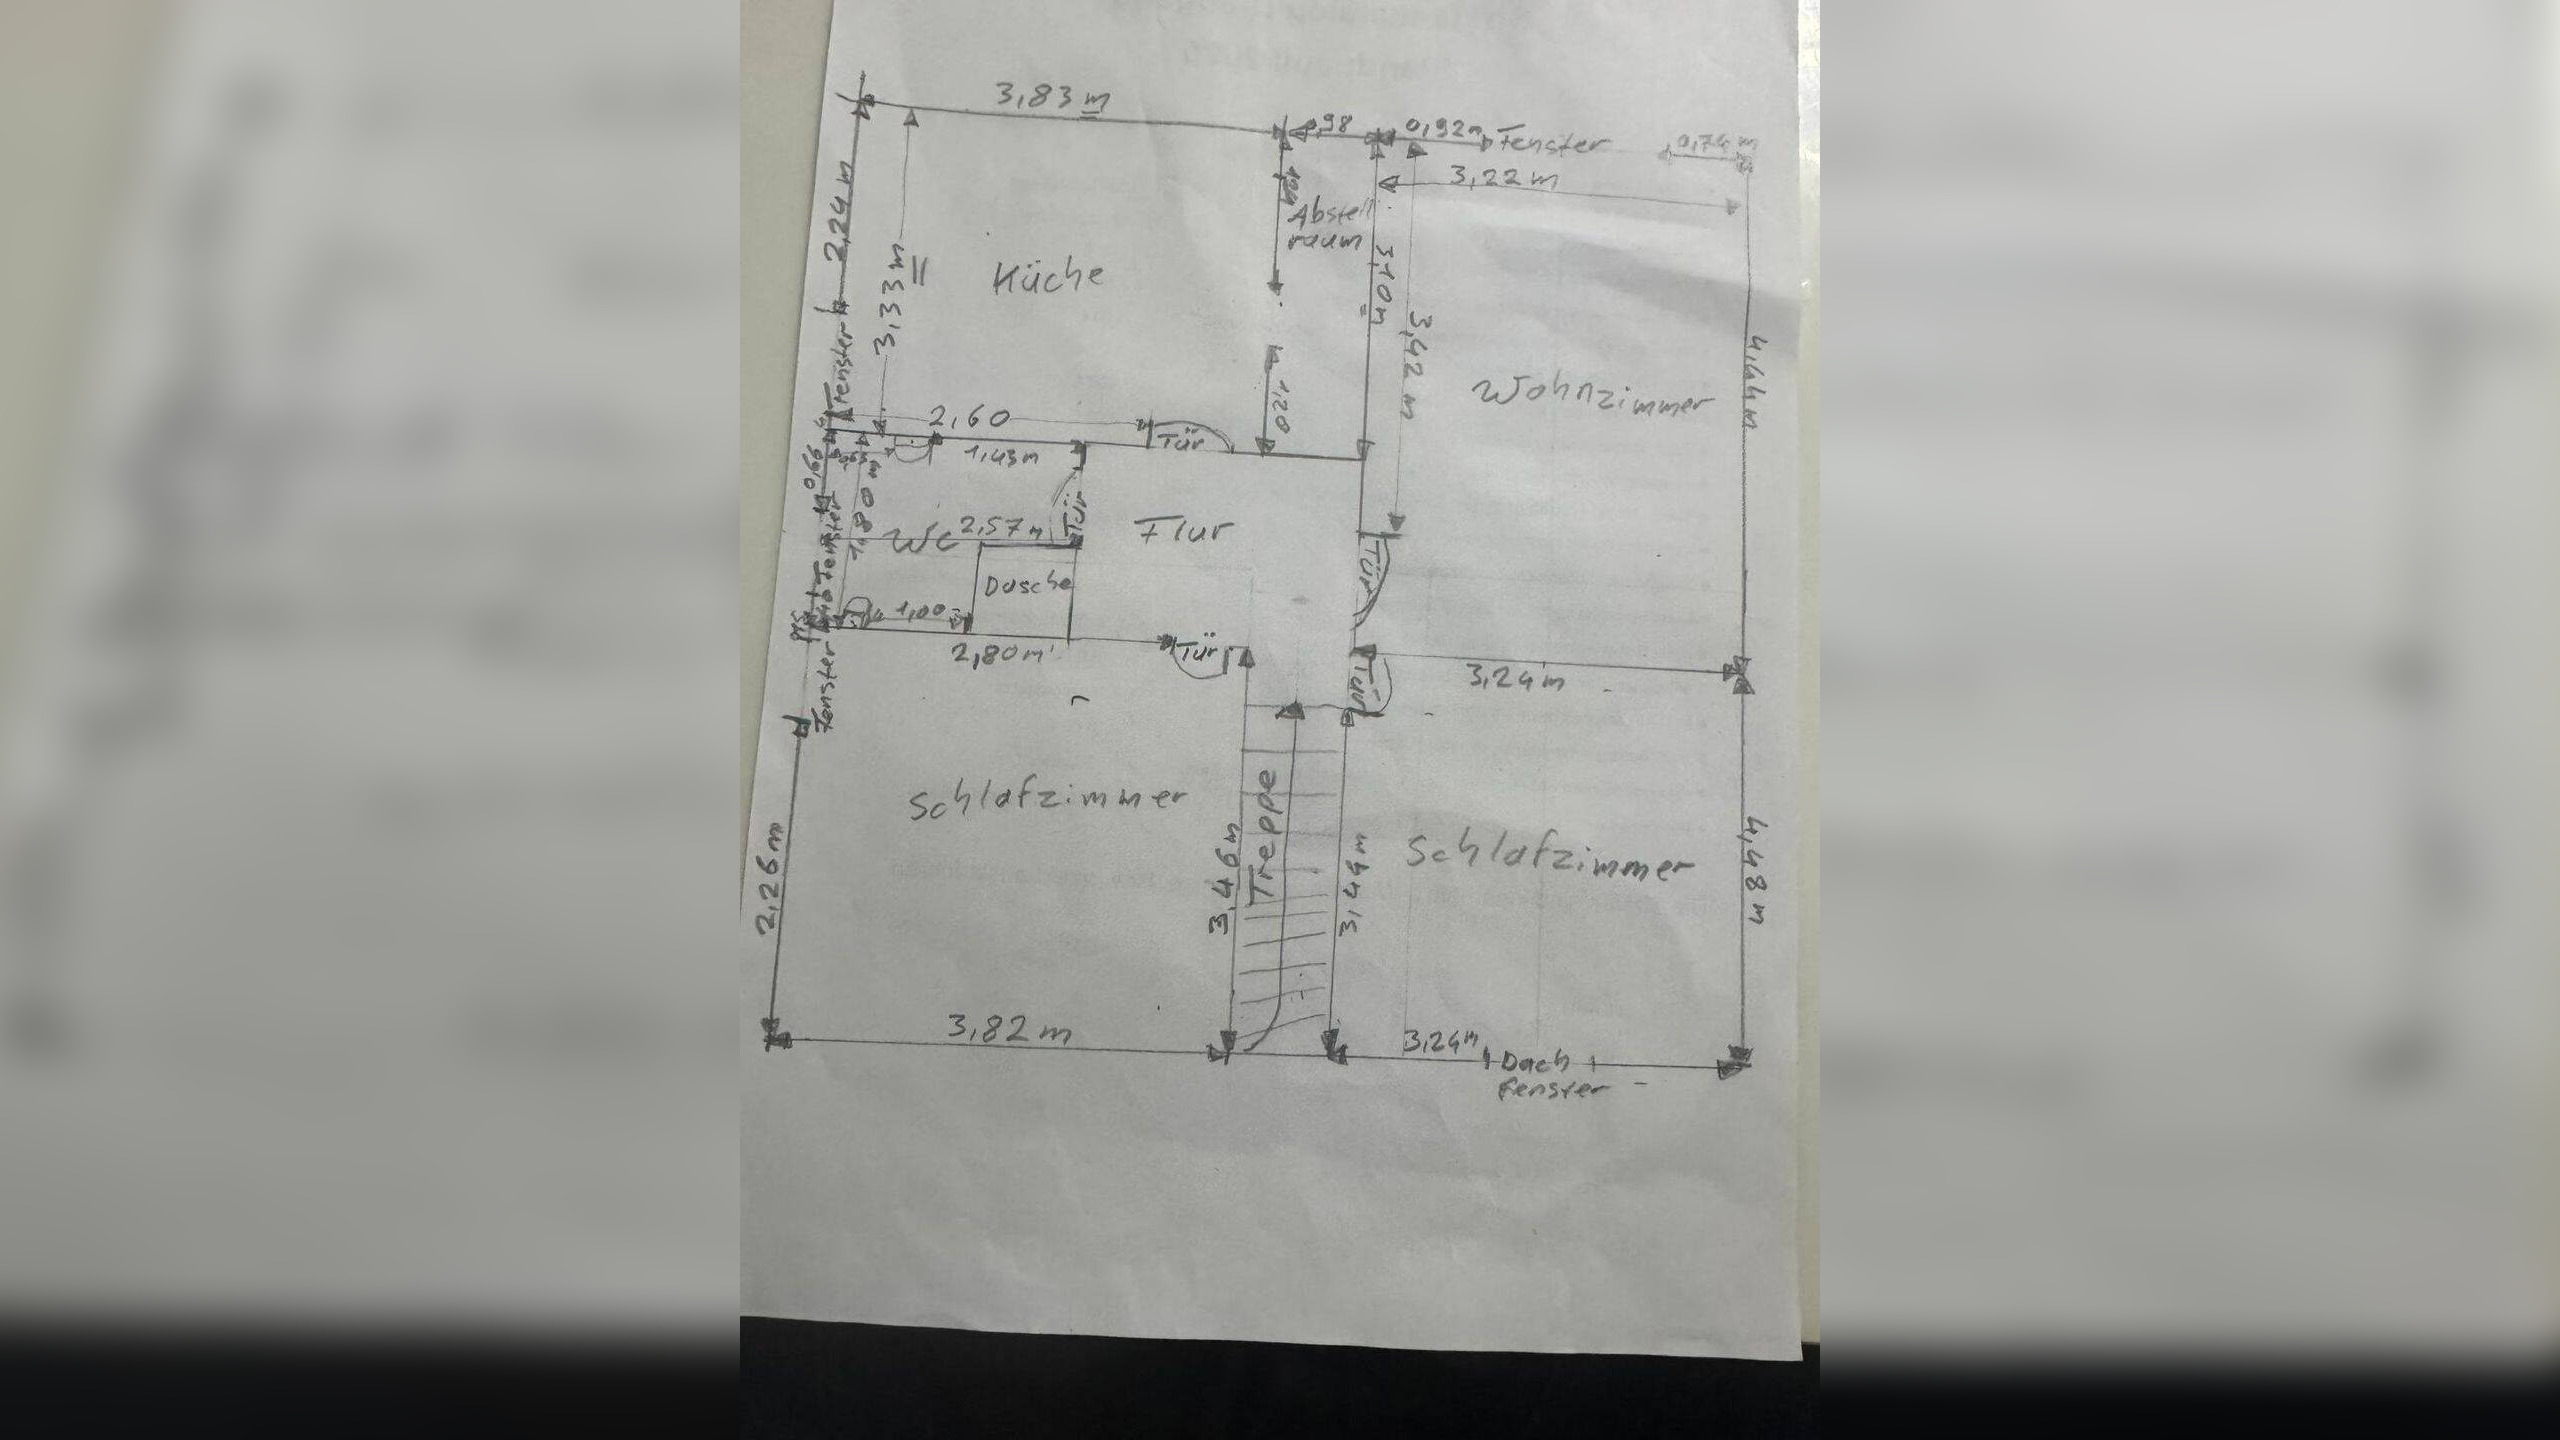 3,83 m
0,98
0,92m
Fenster
0,74 m
3,22 m
2,24 m
Tür
Abstell
raum
3,33 m
3,10m
Küche
3,42 m
Wohnzimmer
4,44 m
Fenster
2,60
1,20
Tür
1,43m
0,66
1,80 m
Tür
WC
2,57m
Flur
Fenster
Dusche
Tür
1,00
2,80m
Tür
Tür
3,24m
Fenster
Schlafzimmer
Treppe
Schlafzimmer
2,26m
3,46m
3,44m
4,48 m
3,82 m
3,24m
Dach
fenster